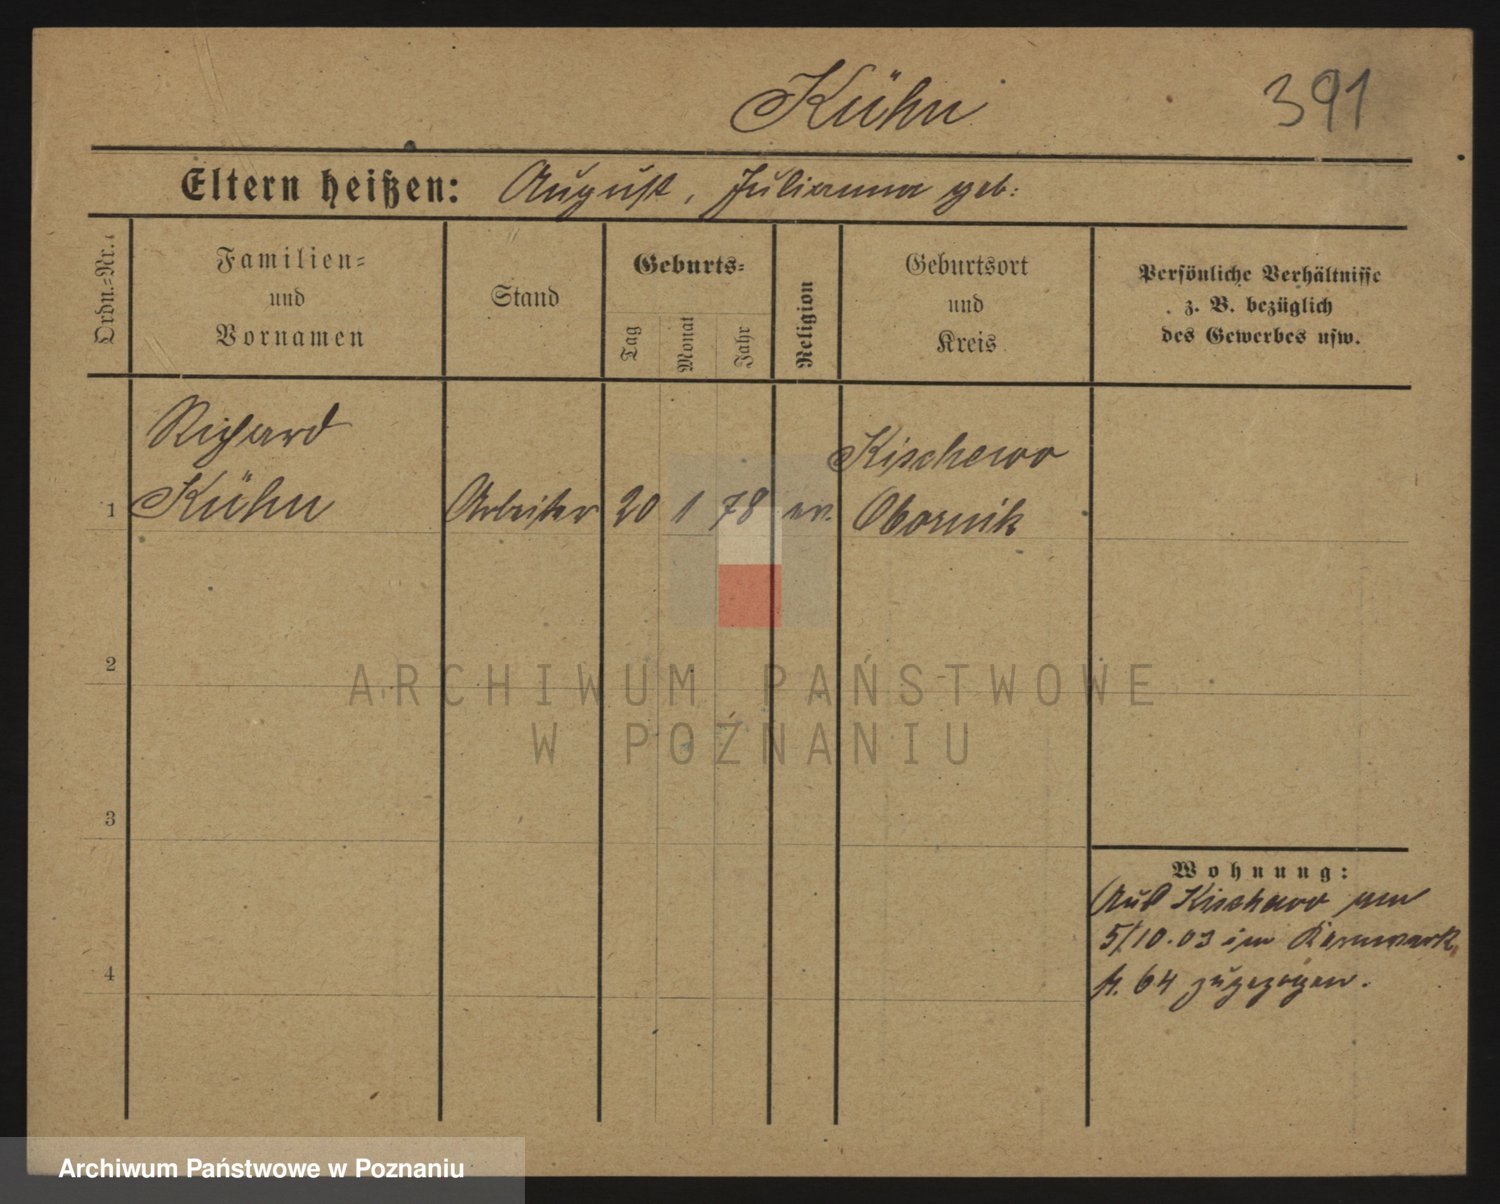 Kühn
391
Eltern heißen: August, Julianna geb:
Ordn.-Nr.
Familien-
und
Vornamen
Stand
Geburts-
Tag
Monat
Jahr
Religion
Geburtsort
und
Kreis
Persönliche Verhältnisse
z. B. bezüglich
des Gewerbes usw.
Richard
Kühn
1
Arbeiter
20
1
78
ev.
Kischewo
Obornik
2
3
4
Wohnung:
Aus Kischewo am
5/10.03 in
64 zugezogen.
ARCHIWUM PAŃSTWOWE
W POZNANIU
Archiwum Państwowe w Poznaniu